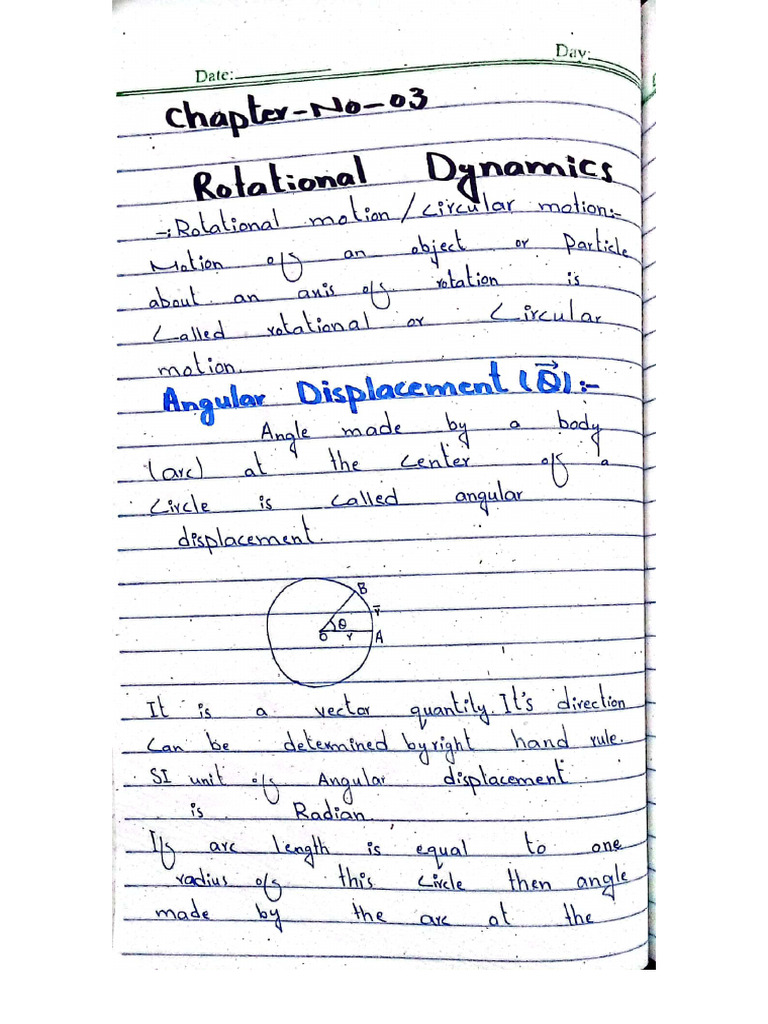 Day:
Date:
Chapter-No-03
Rotational Dynamics
-:Rotational motion/circular motion:-
Motion of an object or Particle
about an axis of rotation is
Called rotational or Circular
motion.
Angular Displacement (θ⃗):-
Angle made by a body
(arc) at the center of a
Circle is called angular
displacement.
B
r
θ
O r A
It is a vector quantity. It's direction
Can be determined by right hand rule.
SI unit of Angular displacement
is Radian.
If arc length is equal to one
radius of this circle then angle
made by the arc at the